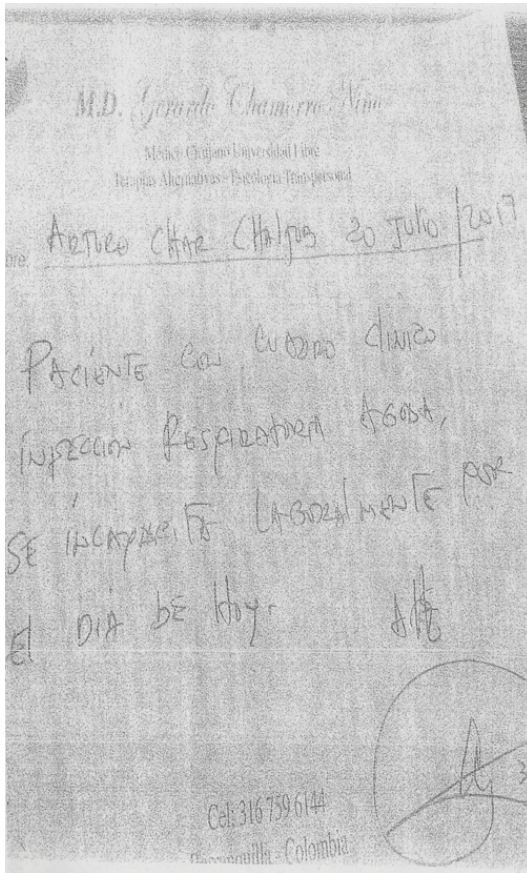 M.D. Gerardo Chamorro Niño
Médico Cirujano Universidad Libre
Terapias Alternativas - Psicología Transpersonal
bre. ARTURO CHAR CHALJUB 20 JULIO / 2017
PACIENTE CON CUADRO CLINICO
INFECCION RESPIRATORIA AGUDA,
SE INCAPACITA LABORALMENTE POR
El DIA DE HOY.
Cel: 316 759 6144
Barranquilla - Colombia